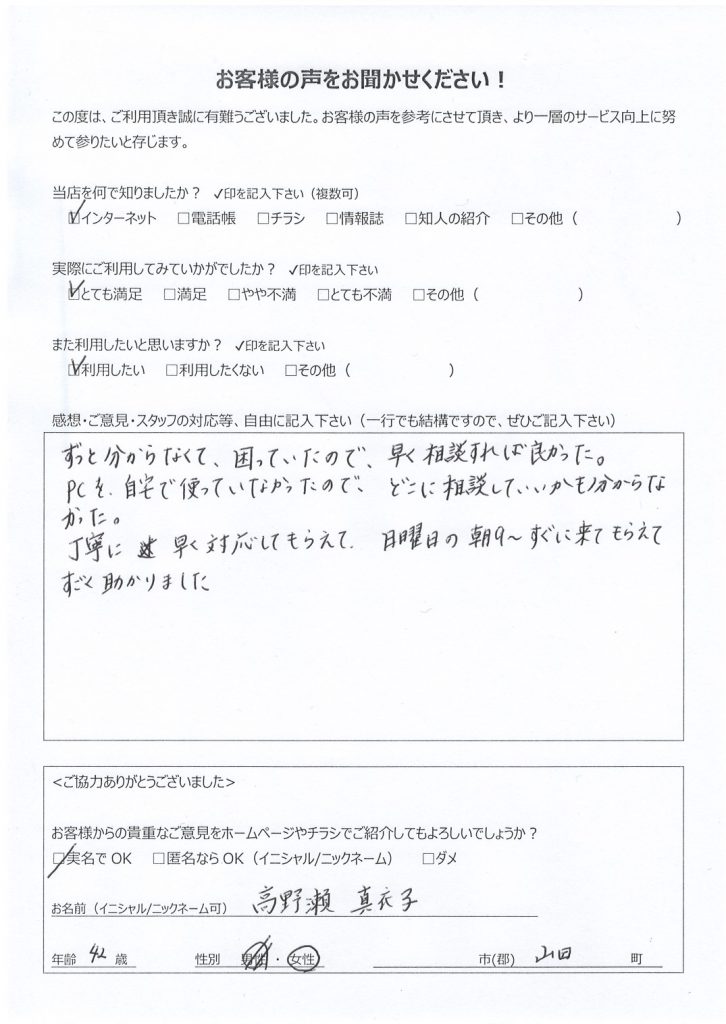 お客様の声をお聞かせください！
この度は、ご利用頂き誠に有難うございました。お客様の声を参考にさせて頂き、より一層のサービス向上に努
めて参りたいと存じます。
当店を何で知りましたか？ ✓印を記入下さい（複数可）
☑インターネット □電話帳 □チラシ □情報誌 □知人の紹介 □その他（ ）
実際にご利用してみていかがでしたか？ ✓印を記入下さい
☑とても満足 □満足 □やや不満 □とても不満 □その他（ ）
また利用したいと思いますか？ ✓印を記入下さい
☑利用したい □利用したくない □その他（ ）
感想・ご意見・スタッフの対応等、自由に記入下さい（一行でも結構ですので、ぜひご記入下さい）
ずっと分からなくて、困っていたので、早く相談すれば良かった。
PCを、自宅で使っていなかったので、どこに相談していいかも分からな
かった。
丁寧に 早く対応してもらえて、日曜日の朝9～すぐに来てもらえて
すごく助かりました
<ご協力ありがとうございました>
お客様からの貴重なご意見をホームページやチラシでご紹介してもよろしいでしょうか？
☑実名でOK □匿名ならOK（イニシャル/ニックネーム） □ダメ
お名前（イニシャル/ニックネーム可） 高野瀬 真衣子
年齢 42 歳 性別 男性・女性 市(郡) 山田 町